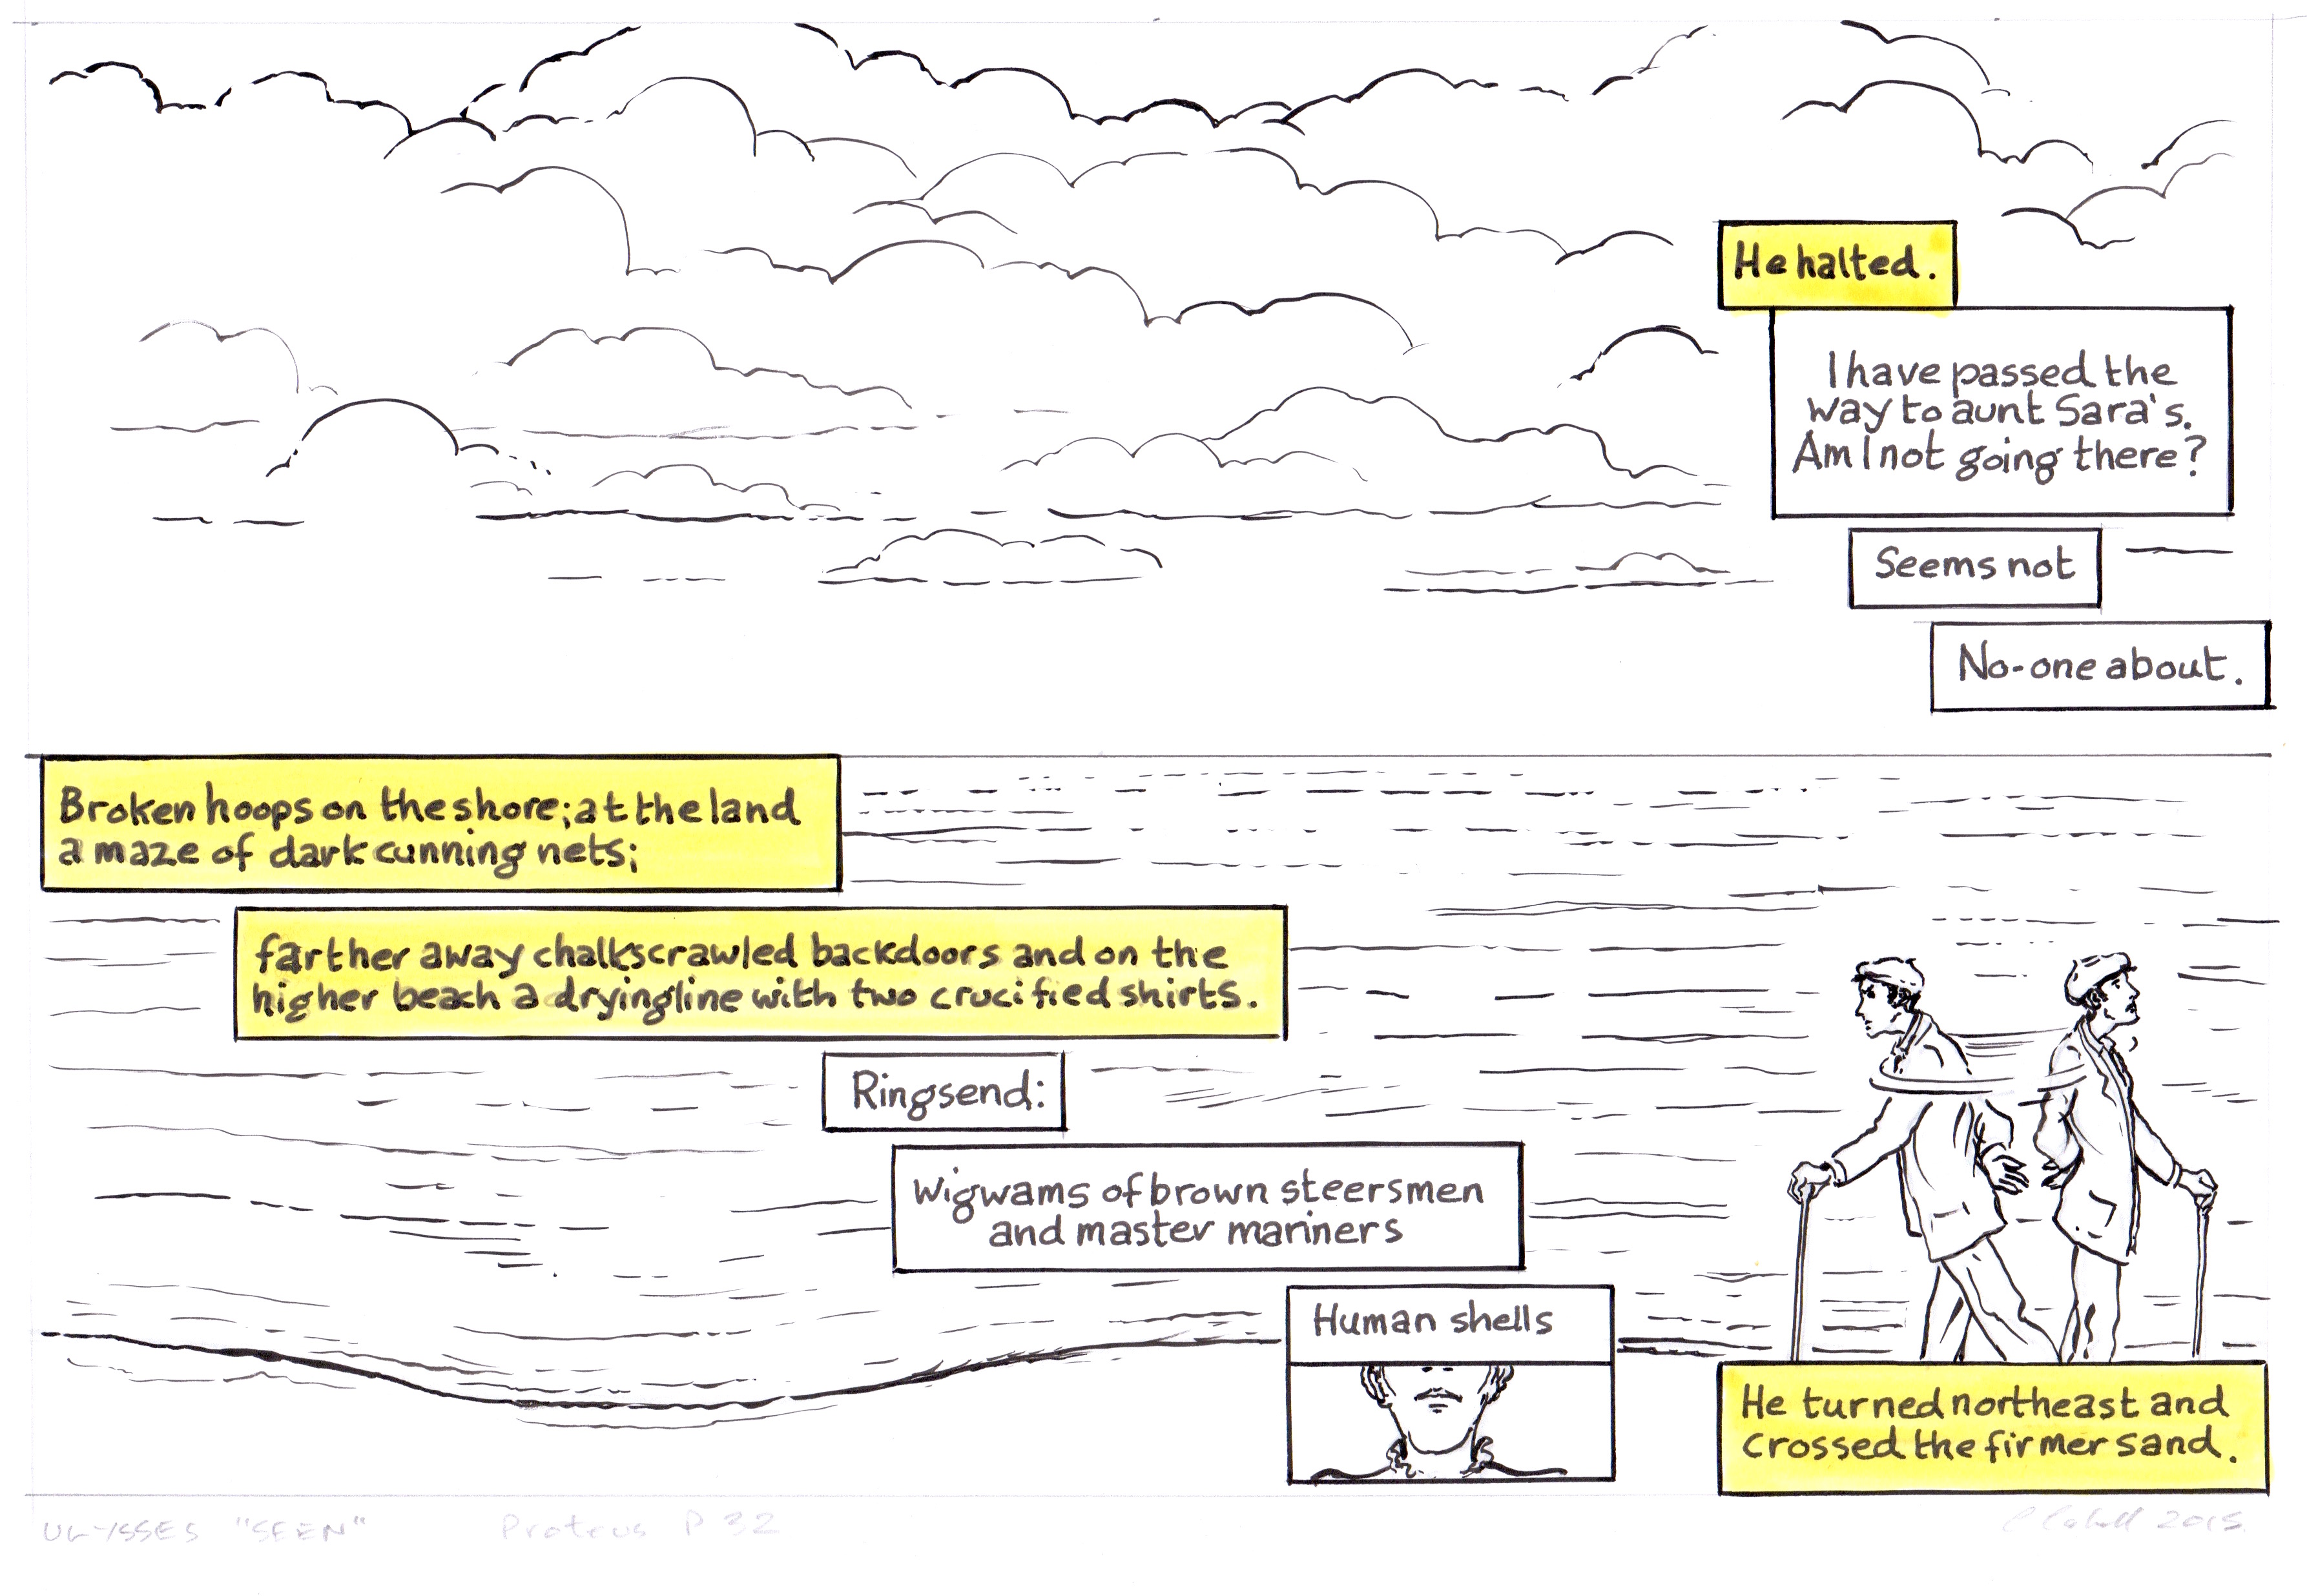 He halted.
I have passed the
way to aunt Sara's.
Am I not going there?
Seems not
No-one about.
Broken hoops on the shore; at the land
a maze of dark cunning nets;
farther away chalkscrawled backdoors and on the
higher beach a dryingline with two crucified shirts.
Ringsend:
Wigwams of brown steersmen
and master mariners
Human shells
He turned northeast and
crossed the firmer sand.
ULYSSES "SEEN" Proteus P 32
2015